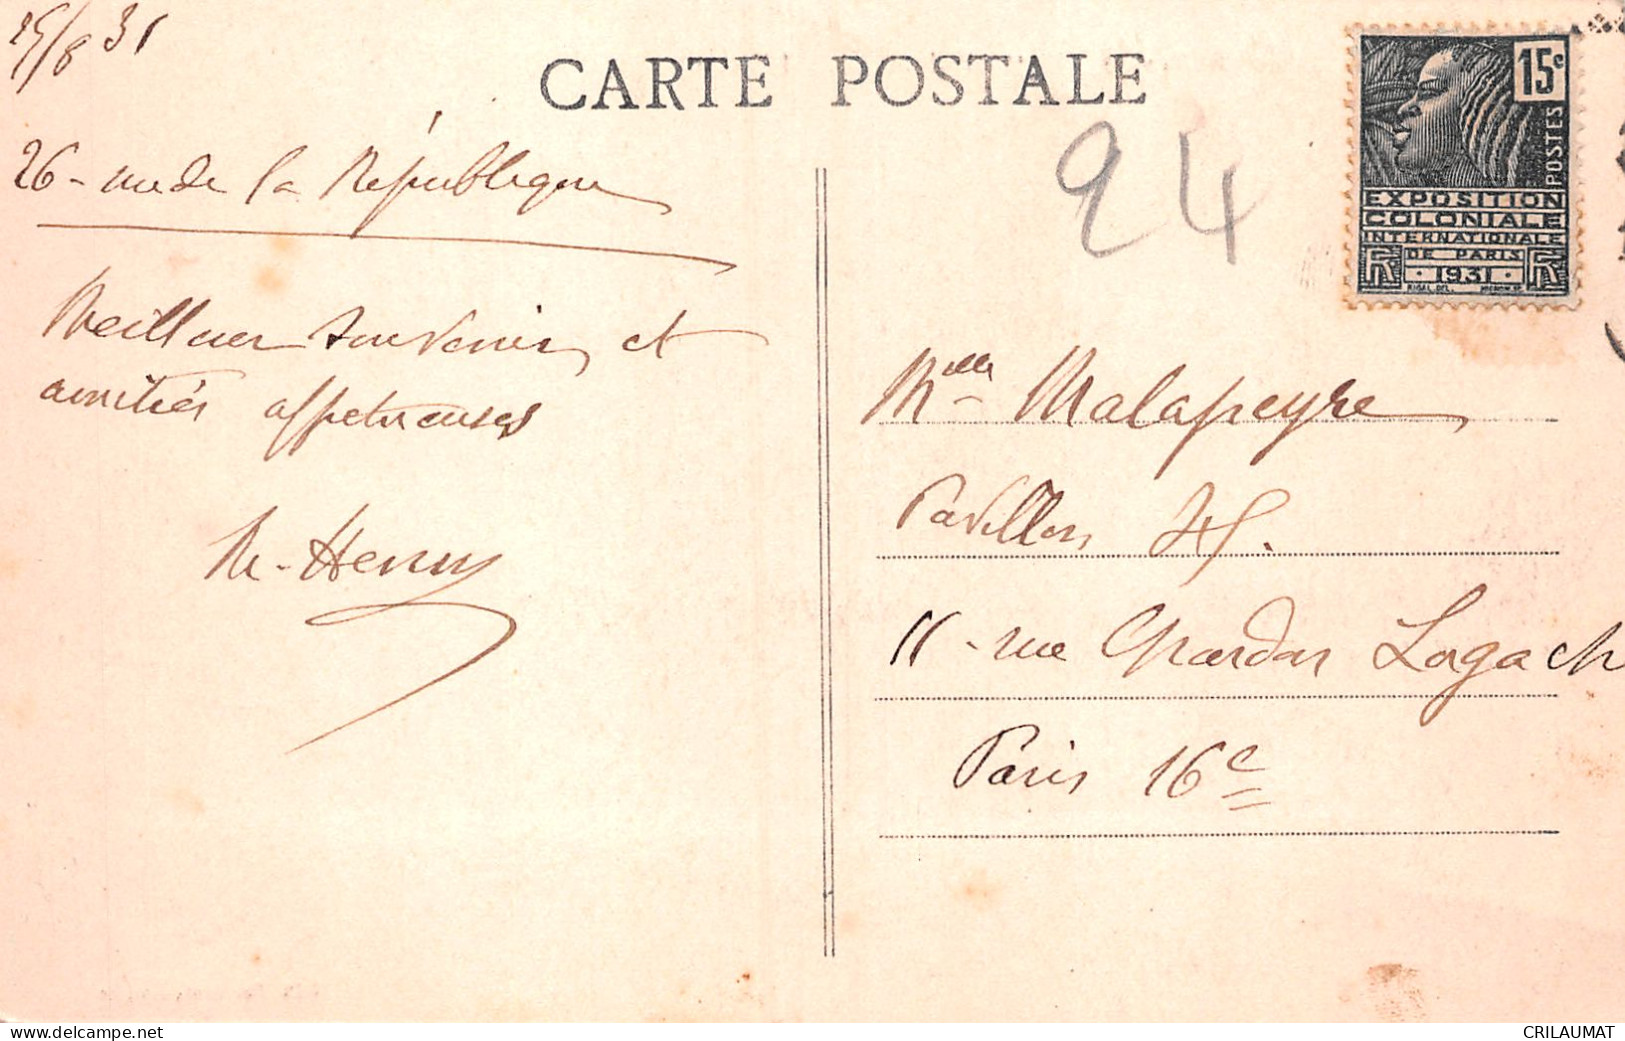 25/8 31
CARTE POSTALE
26 - rue de la République
Meilleur souvenir et
amitiés affectueuses
M. Henry
24
15c
POSTES
EXPOSITION
COLONIALE
INTERNATIONALE
DE PARIS
RF 1931 RF
Mlle Malapeyre
Pavillon
11 - rue Chardon Lagach
Paris 16e
CRILAUMAT